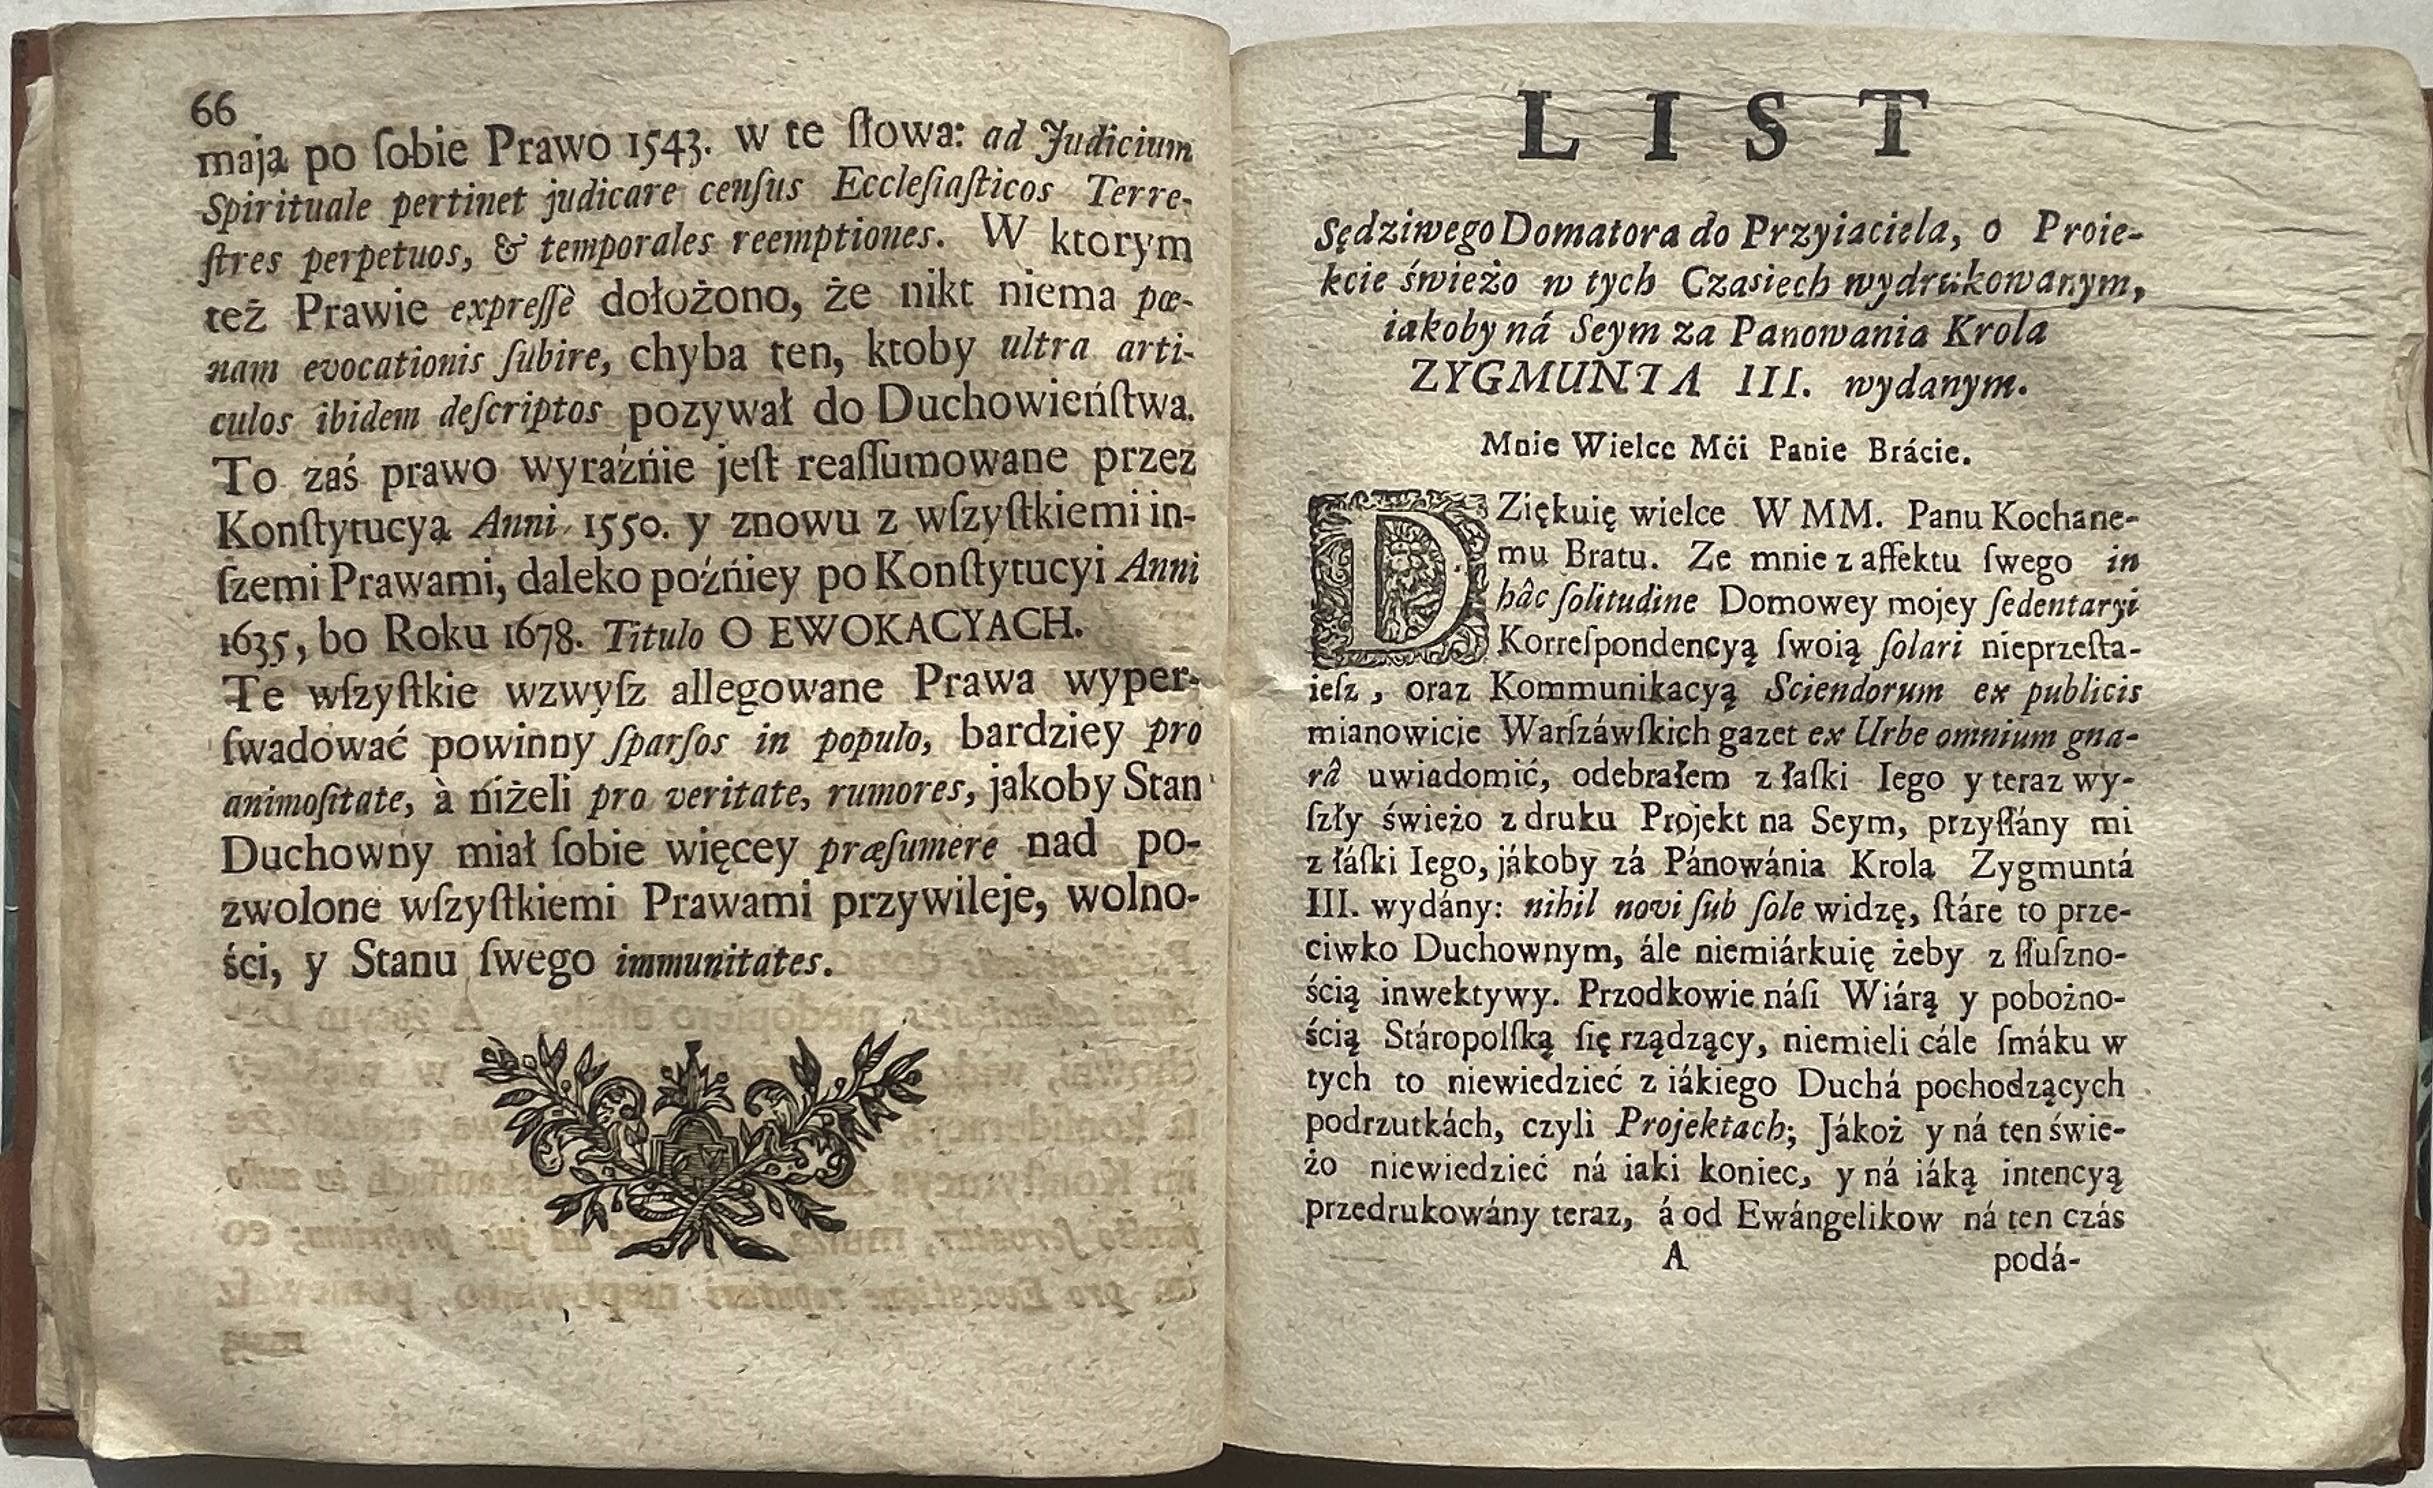 66
mają po ſobie Prawo 1543. w te ſłowa: ad Judicium
Spirituale pertinet judicare cenſus Eccleſiaſticos Terre-
ſtres perpetuos, & temporales reemptiones. W ktorym
też Prawie expreſſè dołożono, że nikt niema pœ-
nam evocationis ſubire, chyba ten, ktoby ultra arti-
culos ibidem deſcriptos pozywał do Duchowieńſtwa.
To zaś prawo wyraźńie jeſt reaſſumowane przez
Konſtytucyą Anni 1550. y znowu z wſzyſtkiemi in-
ſzemi Prawami, daleko poźńiey po Konſtytucyi Anni
1635, bo Roku 1678. Titulo O EWOKACYACH.
Te wſzyſtkie wzwyſz allegowane Prawa wyper-
ſwadować powinny ſparſos in populo, bardziey pro
animoſitate, à ńiżeli pro veritate, rumores, jakoby Stan
Duchowny miał ſobie więcey præſumere nad po-
zwolone wſzyſtkiemi Prawami przywileje, wolno-
ści, y Stanu ſwego immunitates.
LIST
Sędziwego Domatora do Przyiaciela, o Proie-
kcie świeżo w tych Czasiech wydrukowanym,
iakoby ná Seym za Panowania Krola
ZYGMUNTA III. wydanym.
Mnie Wielce Mći Panie Brácie.
DZiękuię wielce W MM. Panu Kochane-
mu Bratu. Ze mnie z affektu ſwego in
hâc ſolitudine Domowey mojey ſedentaryi
Korreſpondencyą ſwoią ſolari nieprzeſta-
ieſz, oraz Kommunikacyą Sciendorum ex publicis
mianowicie Warſzáwſkich gazet ex Urbe omnium gna-
râ uwiadomić, odebrałem z łaſki Iego y teraz wy-
ſzły świeżo z druku Projekt na Seym, przyſłány mi
z łáſki Iego, jákoby zá Pánowánia Krola Zygmuntá
III. wydány: nihil novi ſub ſole widzę, ſtáre to prze-
ciwko Duchownym, ále niemiárkuię żeby z ſłuſzno-
ścią inwektywy. Przodkowie náſi Wiárą y pobożno-
ścią Stáropolſką ſię rządzący, niemieli cále ſmáku w
tych to niewiedzieć z iákiego Duchá pochodzących
podrzutkách, czyli Projektach; Jákoż y ná ten świe-
żo niewiedzieć ná iaki koniec, y ná iáką intencyą
przedrukowány teraz, á od Ewángelikow ná ten czás
A podá-